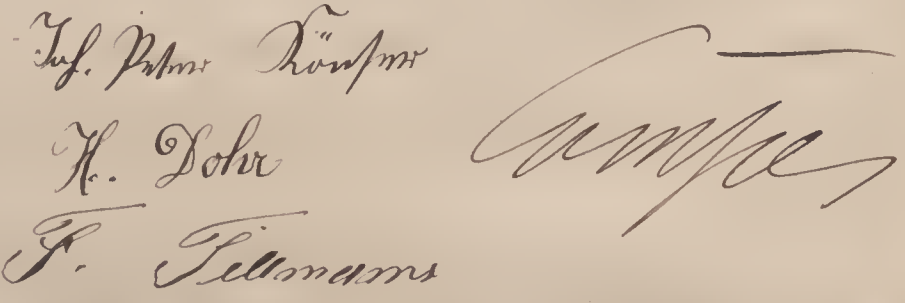 Joh. Peter Könser
H. Dohr
F. Tillmanns